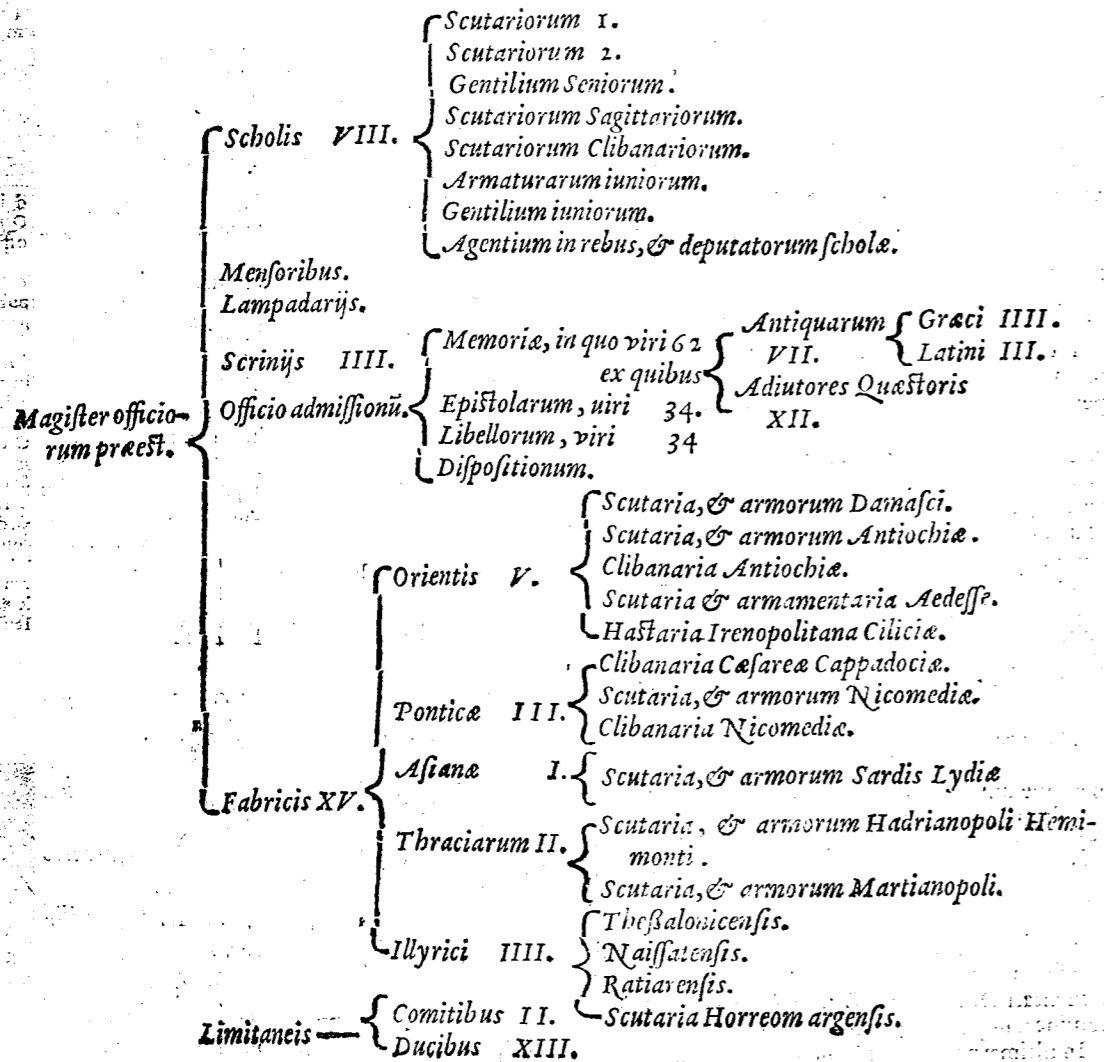 Scutariorum 1.
Scutariorum 2.
Gentilium Seniorum.
Scholis VIII.
Scutariorum Sagittariorum.
Scutariorum Clibanariorum.
Armaturarum iuniorum.
Gentilium iuniorum.
Agentium in rebus, & deputatorum ſcholæ.
Menſoribus.
Lampadarijs.
Scrinijs IIII.
Officio admiſſionū.
Memoriæ, in quo viri 62
ex quibus
Antiquarum
VII.
Græci IIII.
Latini III.
Adiutores Quæſtoris
XII.
Epiſtolarum, uiri 34.
Libellorum, viri 34
Diſpoſitionum.
Magiſter officio-
rum præeſt.
Fabricis XV.
Orientis V.
Scutaria, & armorum Damaſci.
Scutaria, & armorum Antiochiæ.
Clibanaria Antiochiæ.
Scutaria & armamentaria Aedeſſe.
Haſtaria Irenopolitana Ciliciæ.
Ponticæ III.
Clibanaria Cæſareæ Cappadociæ.
Scutaria, & armorum Nicomediæ.
Clibanaria Nicomediæ.
Aſianæ I.
Scutaria, & armorum Sardis Lydiæ
Thraciarum II.
Scutaria, & armorum Hadrianopoli Hemi-
monti.
Scutaria, & armorum Martianopoli.
Illyrici IIII.
Theßalonicenſis.
Naiſſatenſis.
Ratiarenſis.
Scutaria Horreom argenſis.
Limitaneis
Comitibus II.
Ducibus XIII.